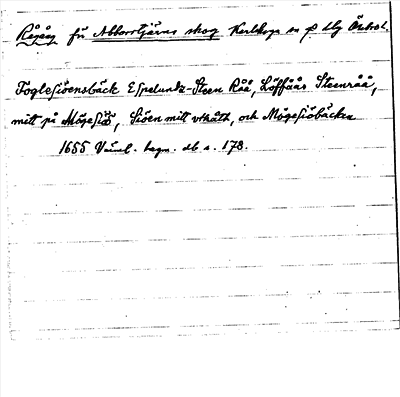 Rågång för Abborrtjärns skog Karlskoga sn o hd Örebro l.
Foglesiöensbäck Espelundz-Steen Råå, Löffåås Steenråå,
mitt på Mögesiö, Siöen mitt vthåth, och Mögesiöbäcken
1655 Värml. hmgn. db s. 178.